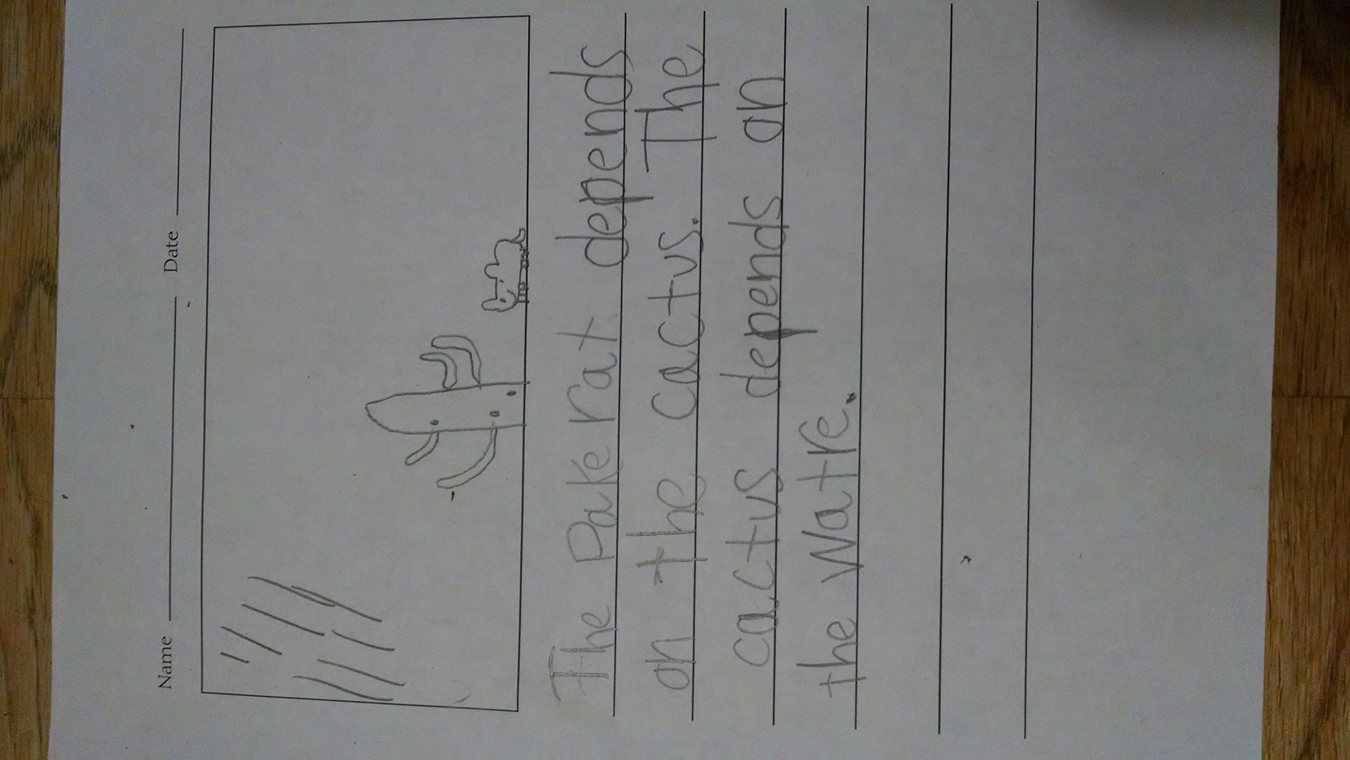 Name Date
The Pake rat depends
on the cactus. The
cactus depends on
the Watre.